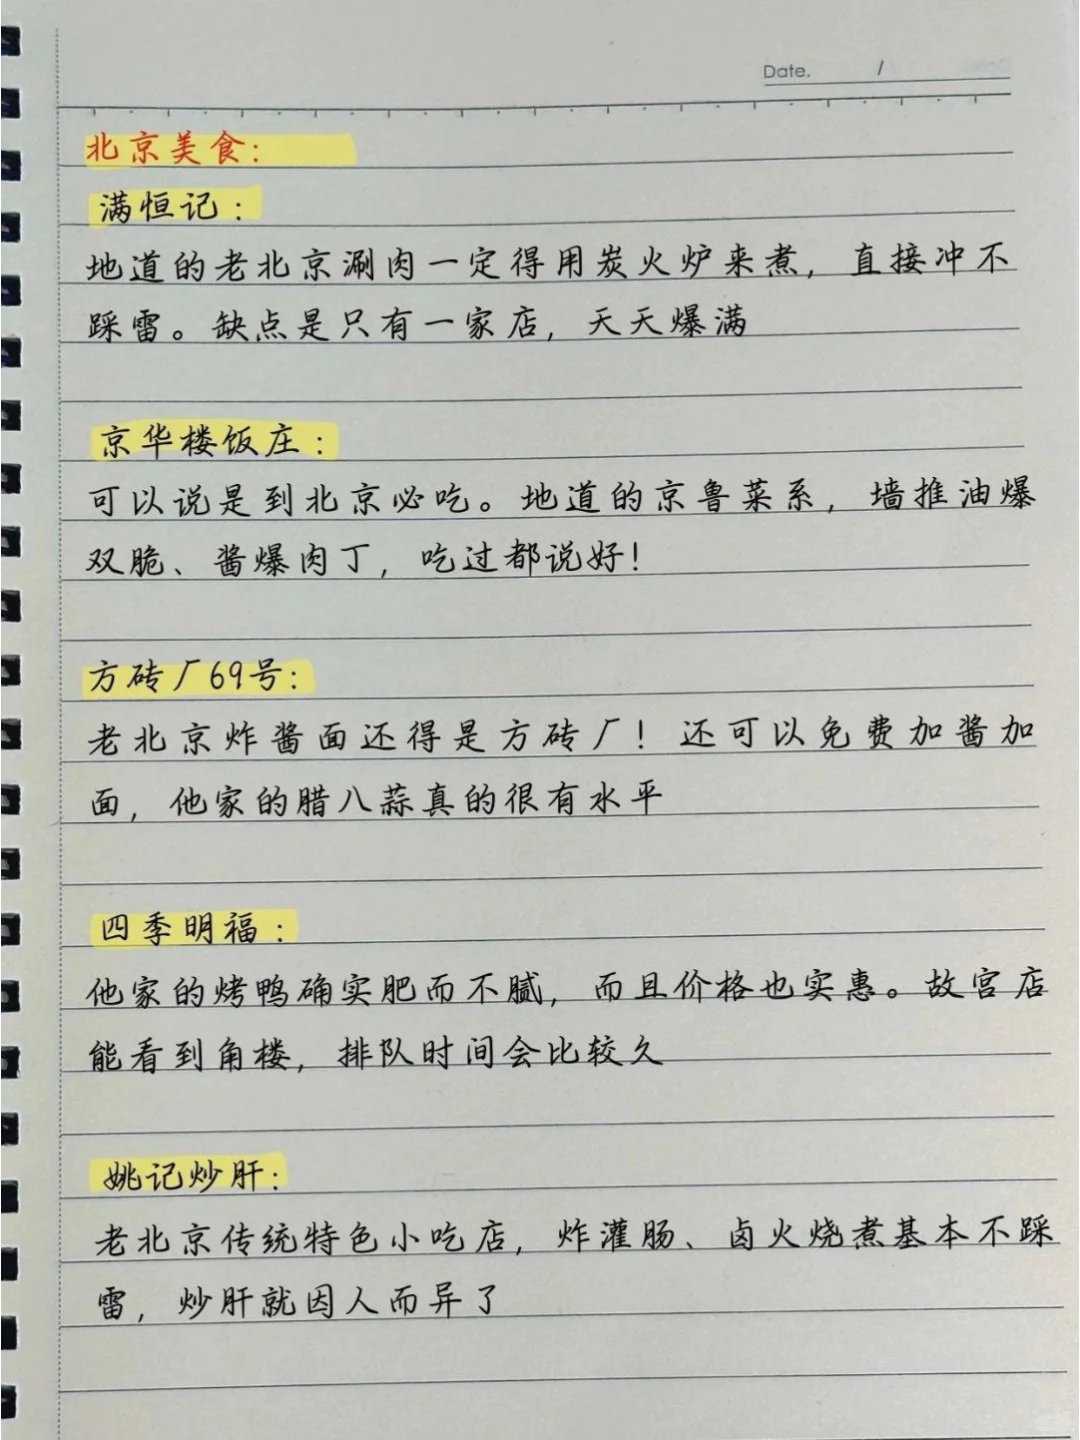 Date. /
北京美食:
满恒记:
地道的老北京涮肉一定得用炭火炉来煮，直接冲不
踩雷。缺点是只有一家店，天天爆满
京华楼饭庄:
可以说是到北京必吃。地道的京鲁菜系，墙推油爆
双脆、酱爆肉丁，吃过都说好!
方砖厂69号:
老北京炸酱面还得是方砖厂!还可以免费加酱加
面，他家的腊八蒜真的很有水平
四季明福:
他家的烤鸭确实肥而不腻，而且价格也实惠。故宫店
能看到角楼，排队时间会比较久
姚记炒肝:
老北京传统特色小吃店，炸灌肠、卤火烧煮基本不踩
雷，炒肝就因人而异了